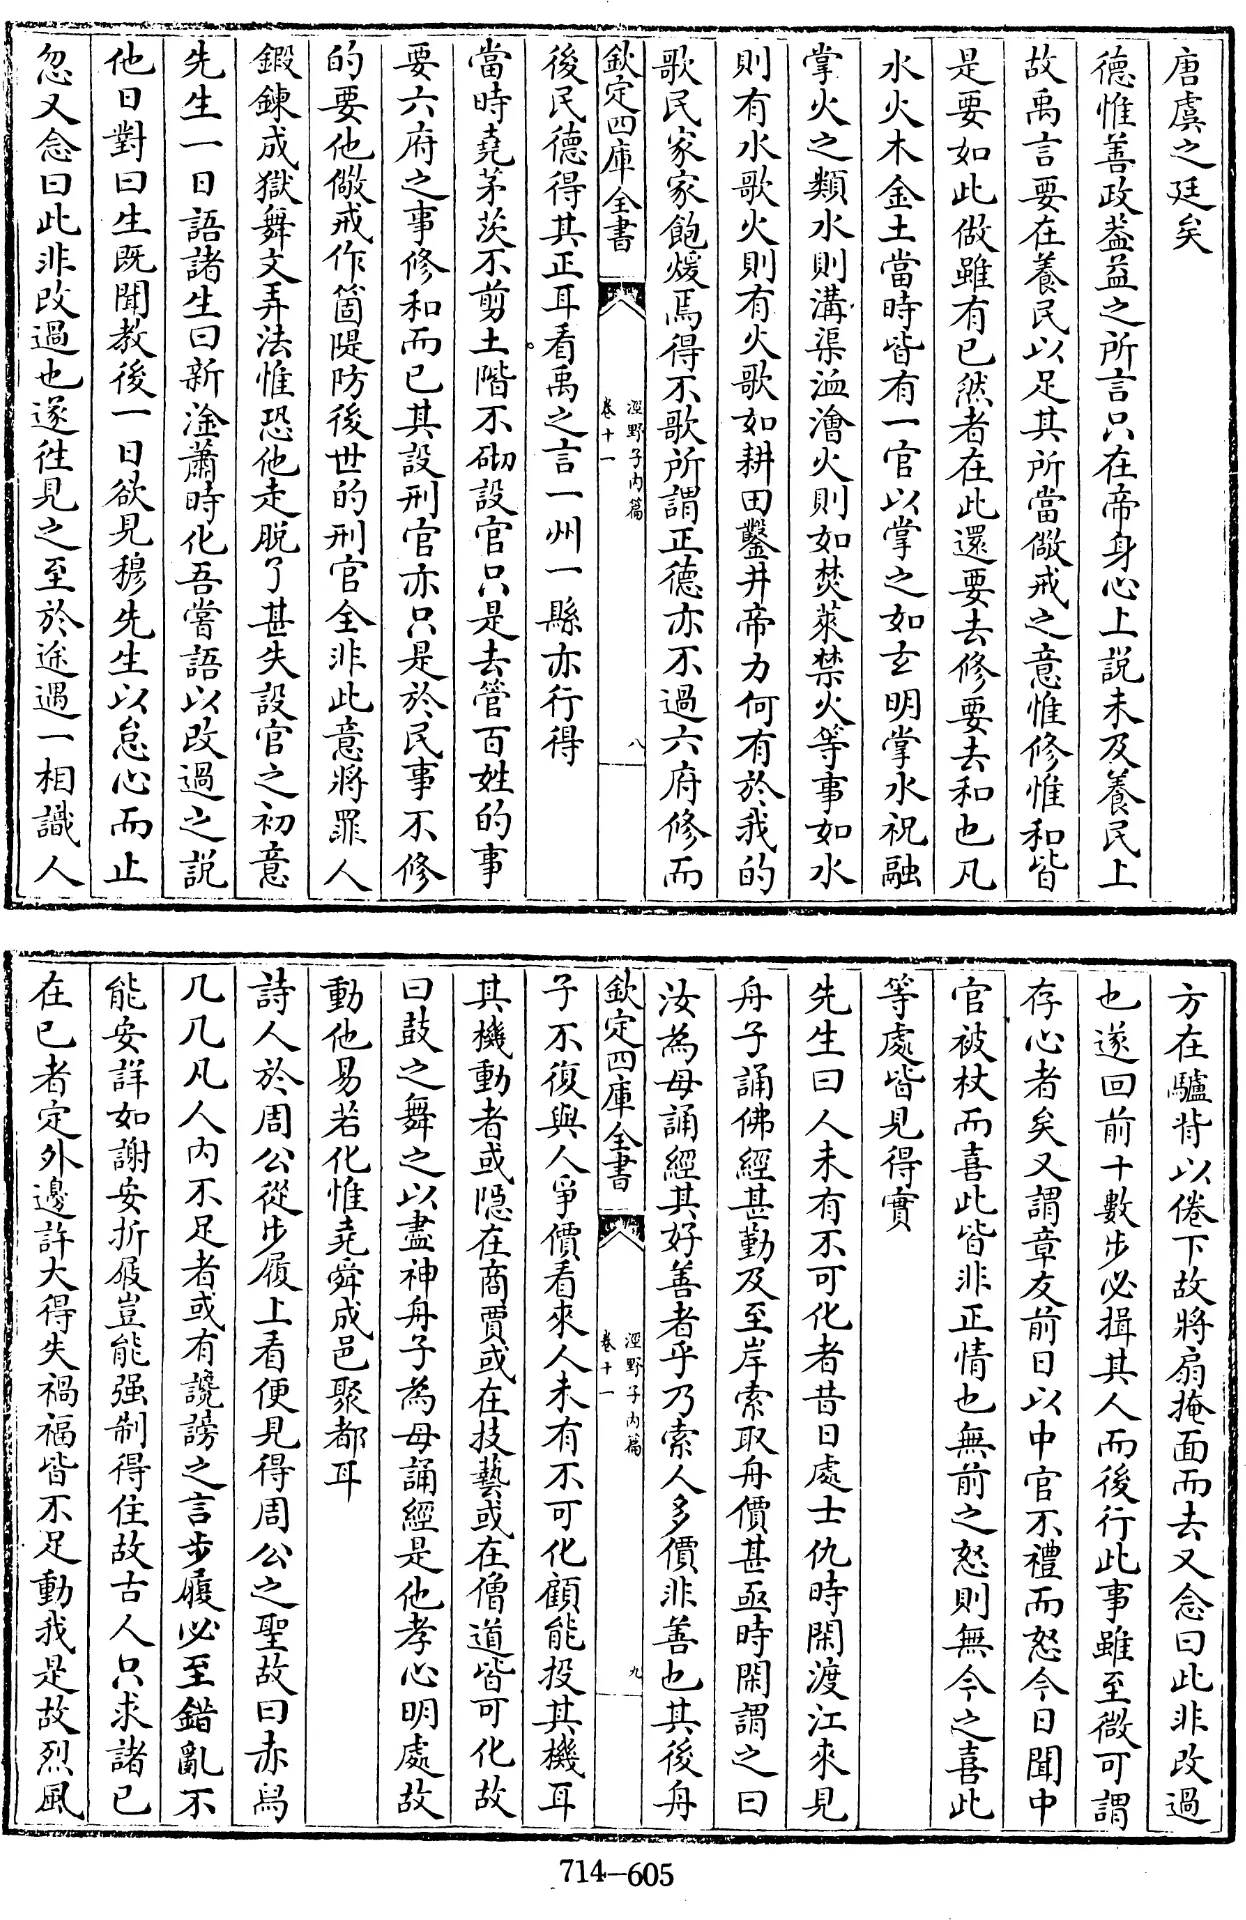 唐虞之廷矣
德惟善政葢益之所言只在帝身心上說未及養民上
故禹言要在養民以足其所當儆戒之意惟修惟和皆
是要如此做雖有已然者在此還要去修要去和也凡
水火木金土當時皆有一官以掌之如玄明掌水祝融
掌火之類水則溝渠洫澮火則如焚萊禁火等事如水
則有水歌火則有火歌如耕田鑿井帝力何有於我的
歌民家家飽煖焉得不歌所謂正德亦不過六府修而
欽定四庫全書
涇野子內篇
卷十一
八
後民德得其正耳看禹之言一州一縣亦行得
當時堯茅茨不剪土階不砌設官只是去管百姓的事
要六府之事修和而已其設刑官亦只是於民事不修
的要他儆戒作箇隄防後世的刑官全非此意將罪人
鍛鍊成獄舞文弄法惟恐他走脫了甚失設官之初意
先生一日語諸生曰新淦蕭時化吾嘗語以改過之説
他日對曰生既聞教後一日欲見穆先生以怠心而止
忽又念曰此非改過也遂徃見之至於途遇一相識人
方在驢背以倦下故將扇掩面而去又念曰此非改過
也遂回前十數步必揖其人而後行此事雖至微可謂
存心者矣又謂章友前日以中官不禮而怒今日聞中
官被杖而喜此皆非正情也無前之怒則無今之喜此
等處皆見得實
先生曰人未有不可化者昔日處士仇時閑渡江來見
舟子誦佛經甚勤及至岸索取舟價甚亟時閑謂之曰
汝為母誦經其好善者乎乃索人多價非善也其後舟
欽定四庫全書
涇野子內篇
卷十一
九
子不復與人爭價看來人未有不可化顧能投其機耳
其機動者或隱在商賈或在技藝或在僧道皆可化故
曰鼓之舞之以盡神舟子為母誦經是他孝心明處故
動他易若化惟堯舜成邑聚都耳
詩人於周公從步履上看便見得周公之聖故曰赤舄
几几凡人內不足者或有讒謗之言步履必至錯亂不
能安詳如謝安折屐豈能强制得住故古人只求諸已
在已者定外邊許大得失禍福皆不足動我是故烈風
714—605